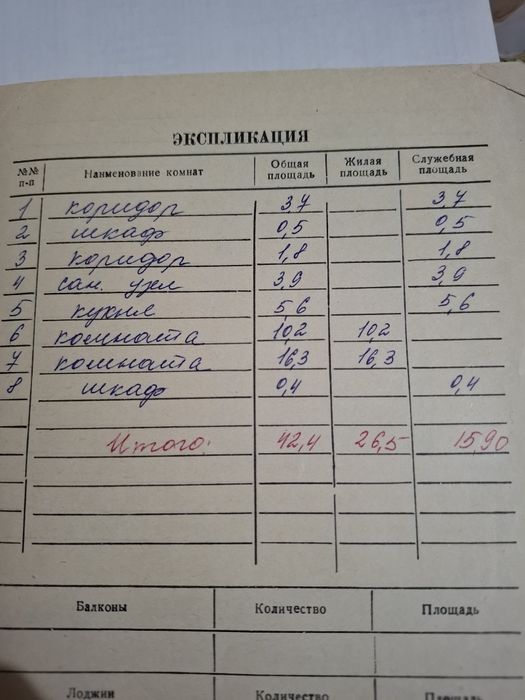 ЭКСПЛИКАЦИЯ
№№ п-п Наименование комнат Общая площадь Жилая площадь Служебная площадь
1 коридор 3,7 3,7
2 шкаф 0,5 0,5
3 коридор 1,8 1,8
4 сан. узел 3,9 3,9
5 кухня 5,6 5,6
6 комната 10,2 10,2
7 комната 16,3 16,3
8 шкаф 0,4 0,4
Итого: 42,4 26,5 15,90
Балконы Количество Площадь
Лоджии Количество Площадь